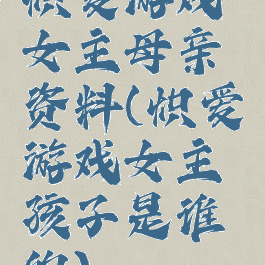 惧爱游戏
女主母亲
资料(惧爱
游戏女主
孩子是谁
的)